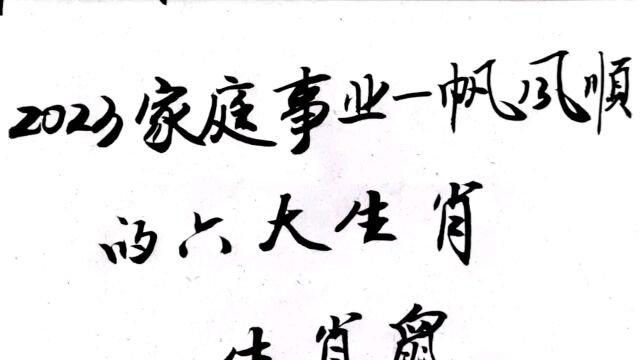 2023家庭事业一帆风順
的六大生肖
生肖鼠